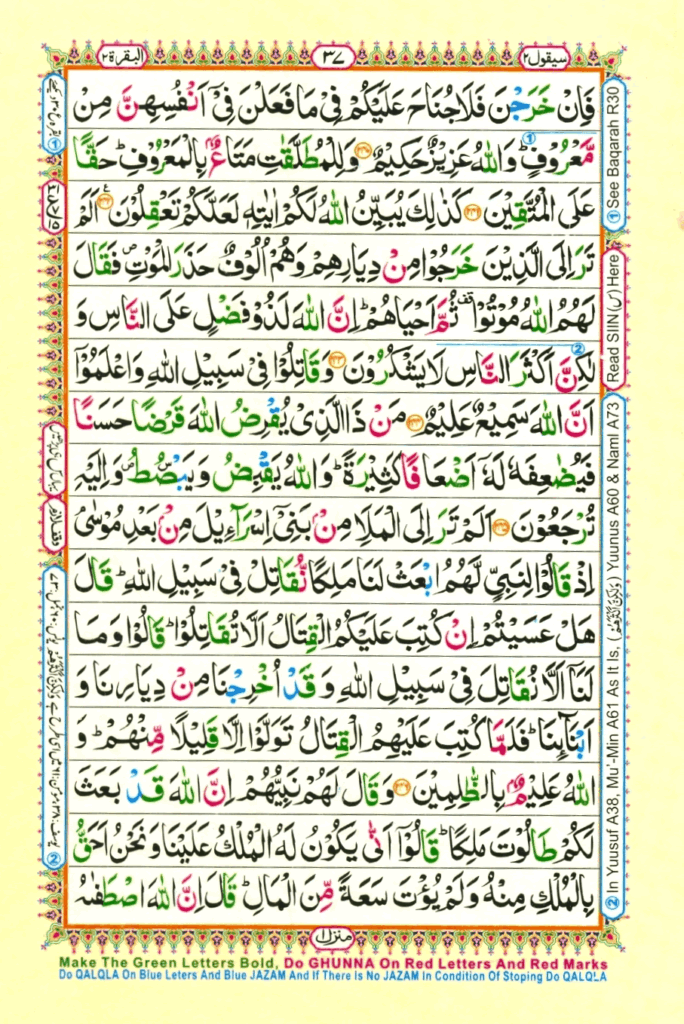 البقرة ٢
٣٧
سيقول ٢
فَاِنْ خَرَجْنَ فَلَا جُنَاحَ عَلَيْكُمْ فِىْ مَا فَعَلْنَ فِىْٓ اَنْفُسِهِنَّ مِنْ
مَّعْرُوْفٍ ؕ وَاللّٰهُ عَزِيْزٌ حَكِيْمٌ ﴿۲۴۰﴾ وَلِلْمُطَلَّقٰتِ مَتَاعٌۢ بِالْمَعْرُوْفِ ؕ حَقًّا
عَلَى الْمُتَّقِيْنَ ﴿۲۴۱﴾ كَذٰلِكَ يُبَيِّنُ اللّٰهُ لَكُمْ اٰيٰتِهٖ لَعَلَّكُمْ تَعْقِلُوْنَ ﴿۲۴۲﴾ اَلَمْ
تَرَ اِلَى الَّذِيْنَ خَرَجُوْا مِنْ دِيَارِهِمْ وَهُمْ اُلُوْفٌ حَذَرَ الْمَوْتِ ۪ فَقَالَ
لَهُمُ اللّٰهُ مُوْتُوْا ۟ ثُمَّ اَحْيَاهُمْ ؕ اِنَّ اللّٰهَ لَذُوْ فَضْلٍ عَلَى النَّاسِ وَ
لٰكِنَّ اَكْثَرَ النَّاسِ لَا يَشْكُرُوْنَ ﴿۲۴۳﴾ وَقَاتِلُوْا فِىْ سَبِيْلِ اللّٰهِ وَاعْلَمُوْٓا
اَنَّ اللّٰهَ سَمِيْعٌ عَلِيْمٌ ﴿۲۴۴﴾ مَنْ ذَا الَّذِىْ يُقْرِضُ اللّٰهَ قَرْضًا حَسَنًا
فَيُضٰعِفَهٗ لَهٗٓ اَضْعَافًا كَثِيْرَةً ؕ وَاللّٰهُ يَقْبِضُ وَيَبْصُۜطُ ۪ وَاِلَيْهِ
تُرْجَعُوْنَ ﴿۲۴۵﴾ اَلَمْ تَرَ اِلَى الْمَلَاِ مِنْۢ بَنِىْٓ اِسْرَآءِيْلَ مِنْۢ بَعْدِ مُوْسٰىۘ
اِذْ قَالُوْا لِنَبِىٍّ لَّهُمُ ابْعَثْ لَنَا مَلِكًا نُّقَاتِلْ فِىْ سَبِيْلِ اللّٰهِ ؕ قَالَ
هَلْ عَسَيْتُمْ اِنْ كُتِبَ عَلَيْكُمُ الْقِتَالُ اَلَّا تُقَاتِلُوْا ؕ قَالُوْا وَمَا
لَنَآ اَلَّا نُقَاتِلَ فِىْ سَبِيْلِ اللّٰهِ وَقَدْ اُخْرِجْنَا مِنْ دِيَارِنَا وَ
اَبْنَآئِنَا ؕ فَلَمَّا كُتِبَ عَلَيْهِمُ الْقِتَالُ تَوَلَّوْا اِلَّا قَلِيْلًا مِّنْهُمْ ؕ وَ
اللّٰهُ عَلِيْمٌۢ بِالظّٰلِمِيْنَ ﴿۲۴۶﴾ وَقَالَ لَهُمْ نَبِيُّهُمْ اِنَّ اللّٰهَ قَدْ بَعَثَ
لَكُمْ طَالُوْتَ مَلِكًا ؕ قَالُوْٓا اَنّٰى يَكُوْنُ لَهُ الْمُلْكُ عَلَيْنَا وَنَحْنُ اَحَقُّ
بِالْمُلْكِ مِنْهُ وَلَمْ يُؤْتَ سَعَةً مِّنَ الْمَالِ ؕ قَالَ اِنَّ اللّٰهَ اصْطَفٰىهُ
منزل ١
① See Baqarah R30
Read SIIN (س) Here
② In Yuusuf A38, Mu'-Min A61 As It Is, Yuunus A60 & Naml A73
Make The Green Letters Bold, Do GHUNNA On Red Letters And Red Marks
Do QALQLA On Blue Leters And Blue JAZAM And If There Is No JAZAM In Condition Of Stoping Do QALQLA